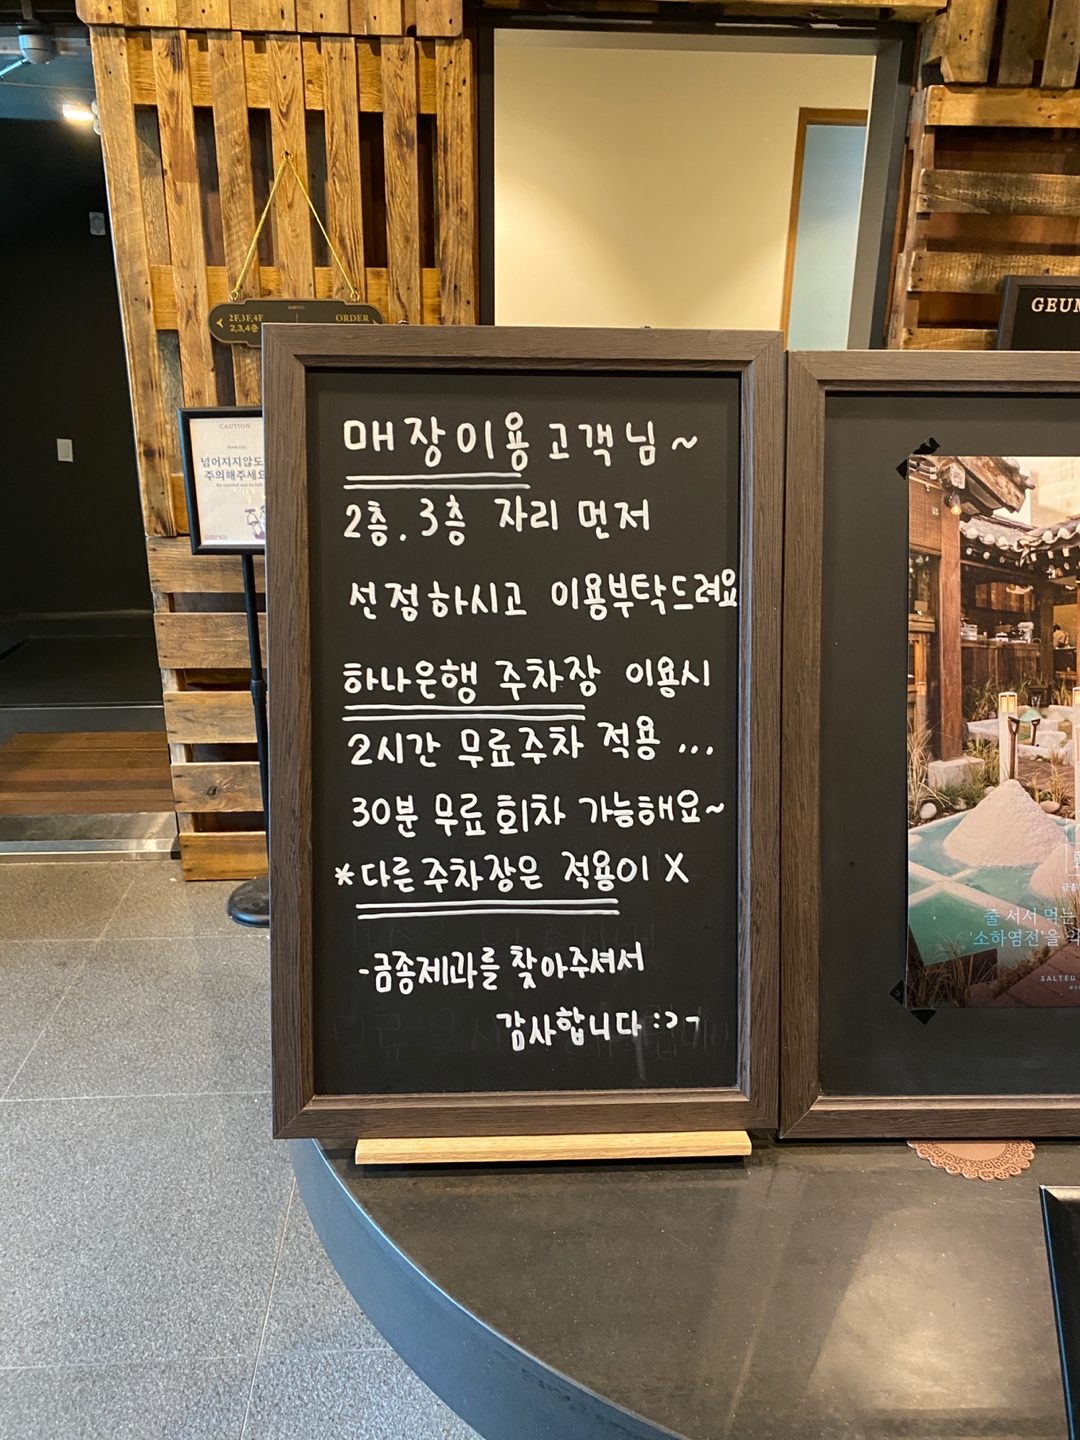 2F,3F,4F
2,3,4층
ORDER
CAUTION
넘어지지않도
주의해주세요
매장이용 고객님~
2층. 3층 자리 먼저
선정하시고 이용부탁드려요
하나은행 주차장 이용시
2시간 무료주차 적용 ...
30분 무료 회차 가능해요~
*다른주차장은 적용이 X
-금종제과를 찾아주셔서
감사합니다 :>ㄱ
GEUM
줄 서서 먹는
'소하염전'을
SALTED